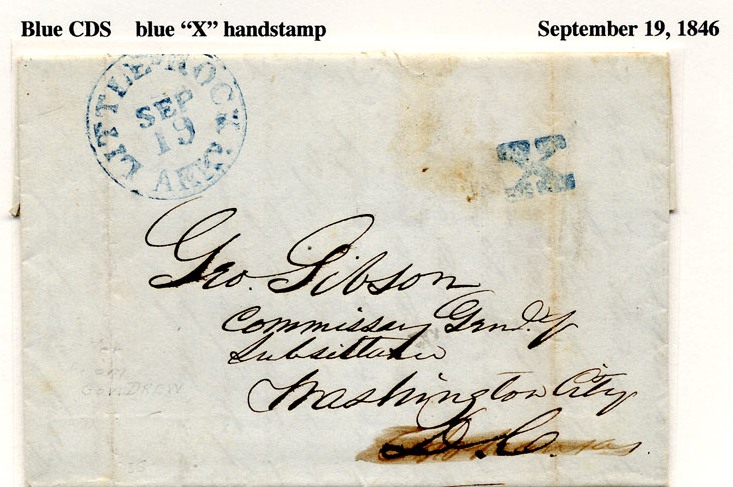 Blue CDS blue “X” handstamp September 19, 1846
LITTLE-ROCK ARK.
SEP
19
X
Geo. Gibson
Commissary Genl. of
Subsistance
Washington City
D.C.
GOV. DREW